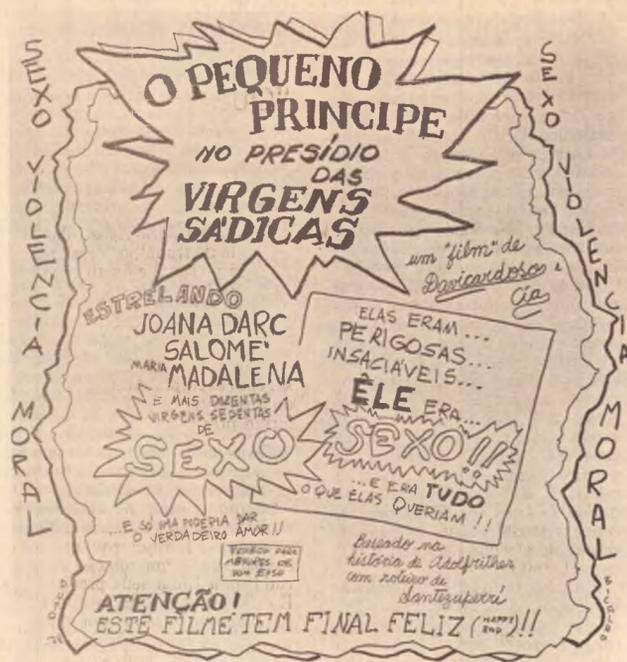 SEXO VIOLENCIA MORAL
O PEQUENO
PRINCIPE
NO PRESÍDIO
DAS
VIRGENS
SÁDICAS
SEXO VIOLENCIA MORAL
um "film" de
Davicardoso e
Cia
ESTRELANDO
JOANA DARC
SALOME'
MARIA MADALENA
E MAIS DUZENTAS
VIRGENS SEDENTAS
DE
SEXO
ELAS ERAM...
PERIGOSAS...
INSACIÁVEIS...
ÊLE ERA...
SEXO!!
...E ERA TUDO
O QUE ELAS QUERIAM!!
...E SÓ UMA PODERIA DAR
O VERDADEIRO AMOR!!
MENORES DE
Baseado na
história de Adolfrither
com roteiro de
Santezuperri
ATENÇÃO!
ESTE FILME TEM FINAL FELIZ (HAPPY END)!!